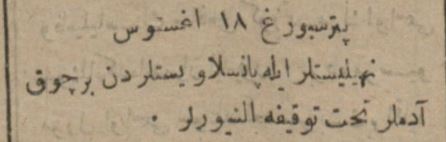 پترسبورغ ١٨ اغستوس
نهیلیستلر ایله پانسلاویستلردن برچوق
آدملر تحت توقیفه النیورلر .